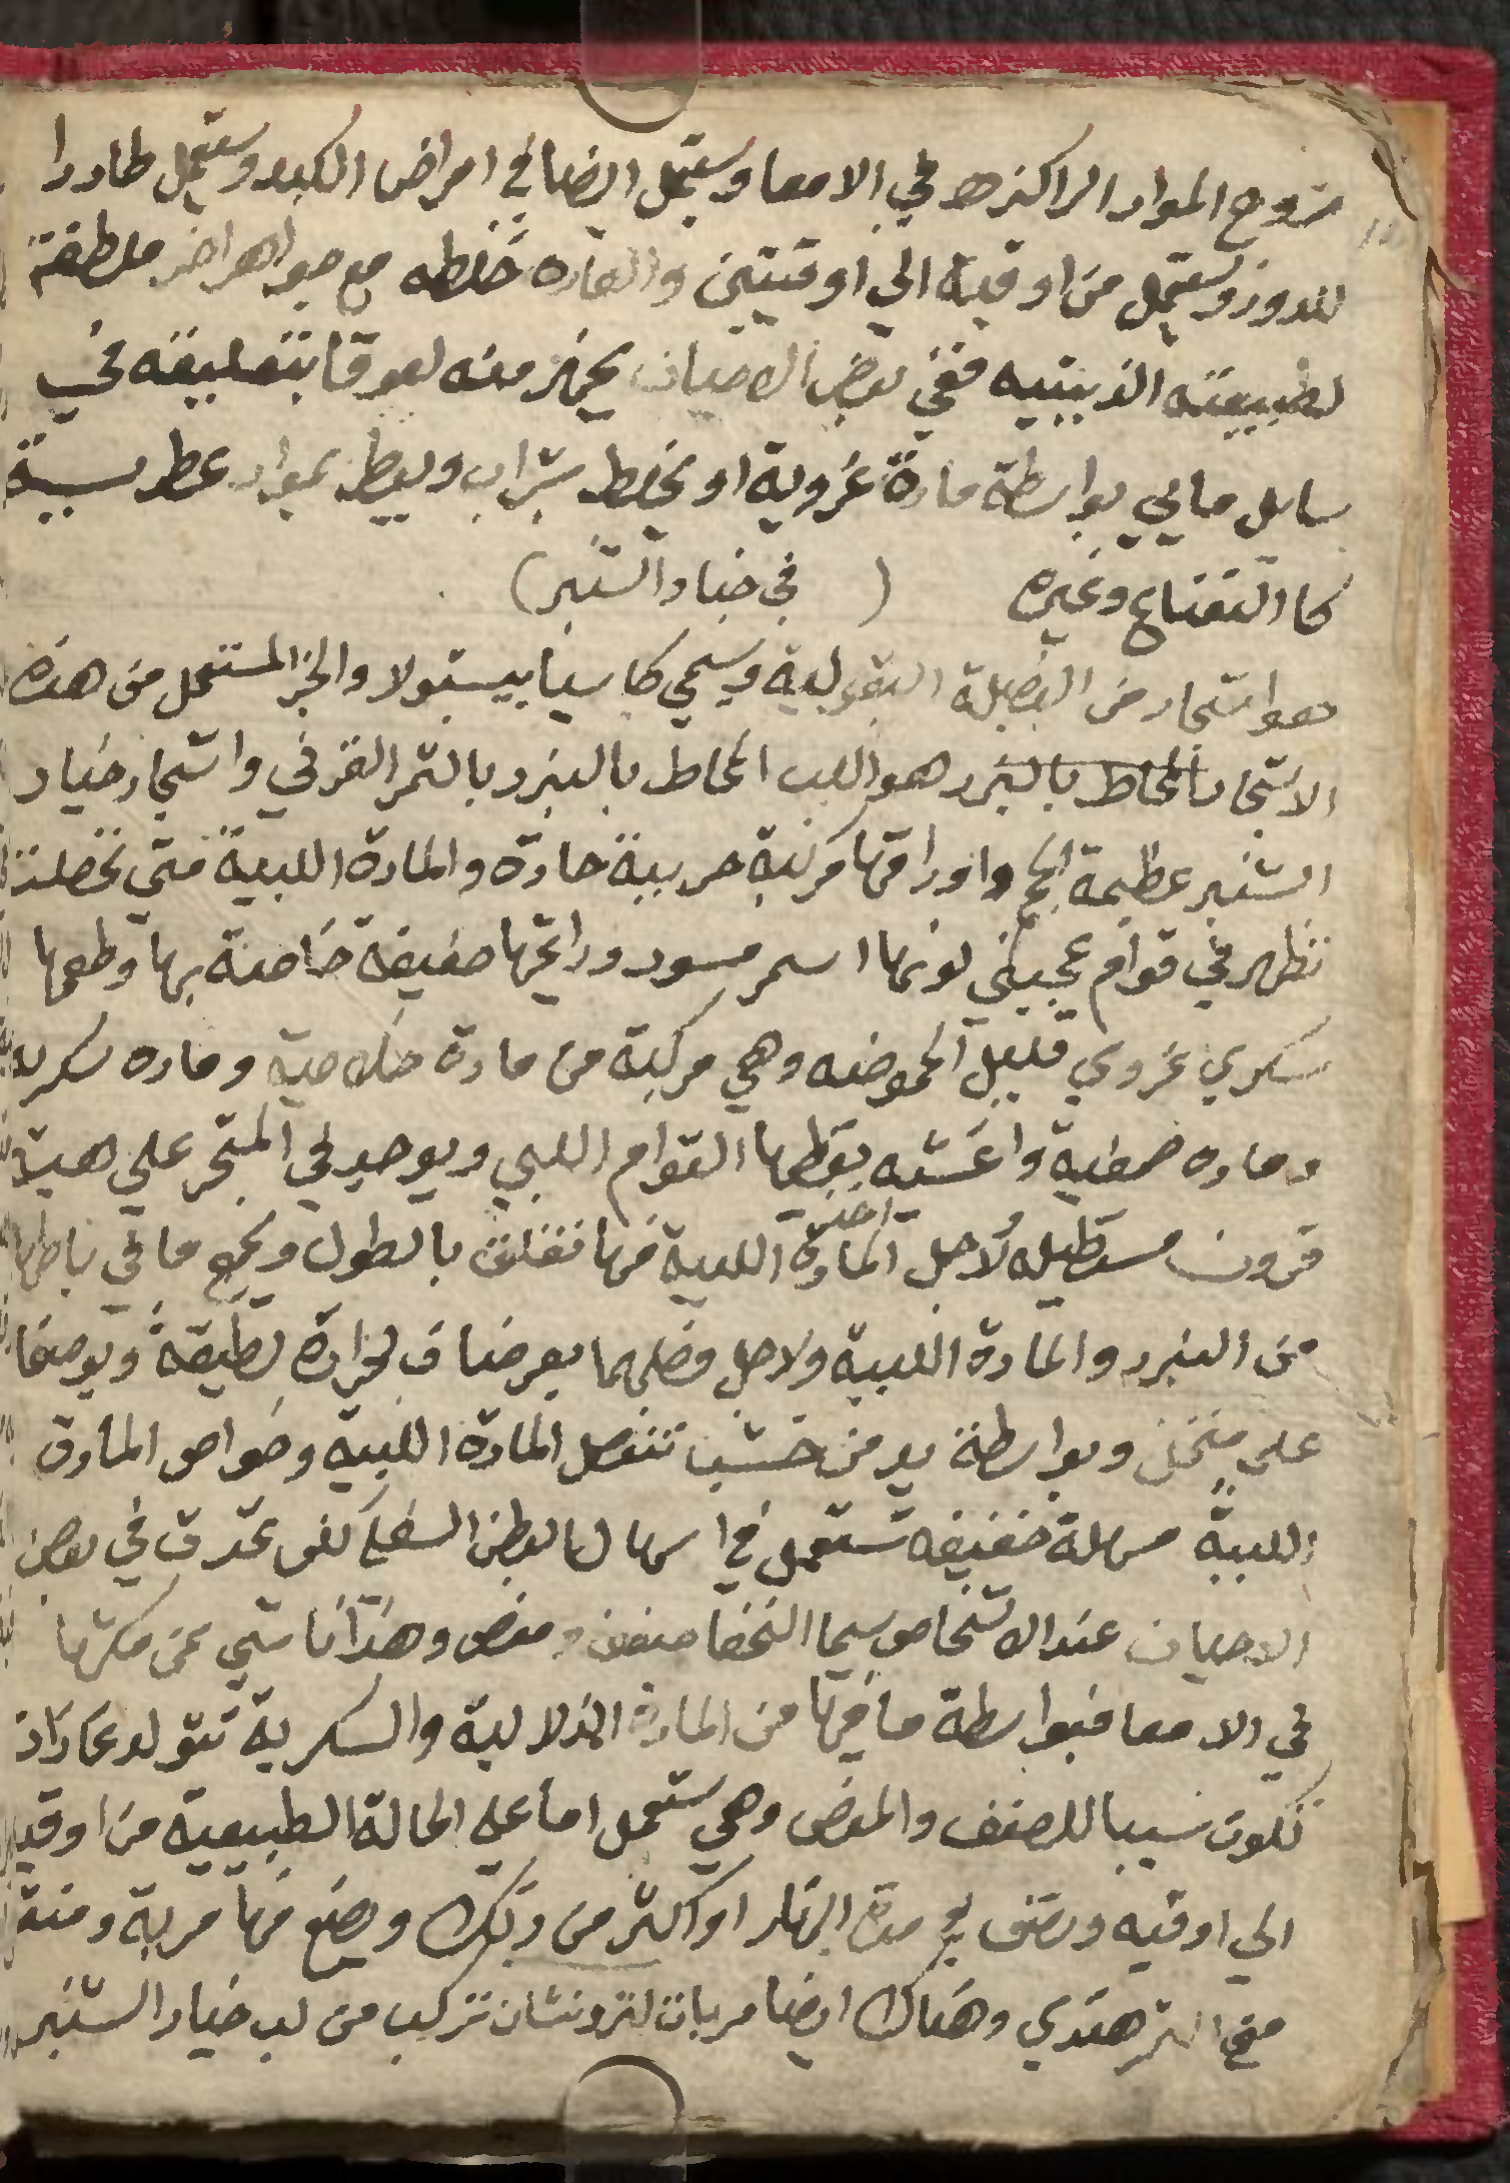 خروج المواد الراكزه في الامعا وستعمل ايضا في امراض الكبد وستعمل طاردا
للدود وتستعمل من اوقية الي اوقيتين والعاده خلطه مع جواهر اخر ملطفة
لطبيعته الذيتيه ففي بعض الاحيان يجهز منه لعوقا بتعليقه في
سايل مايي بواسطة مادة غروية او يخلط بشراب ويعطر بمواد عطريية
كا النعناع وغيره ( في خيار الشنبر )
هو اشجار من الفصيلة البقولية ويسمي كاسيا بيستولا والجز المستعمل من هذه
الاشجار المحاط بالبزر هو اللب المحاط بالبزر بالثمر القرني واشجار خيار
الشنبر عظيمة الحجم واوراقها مركبة حريبة حادة والمادة اللبية متي تحصلت
تظهر في قوام عجيني لونها اسمر مسود ورايحتها ضعيفة خاصة بها وطعمها
سكري غروي قليل الحموضه وهي مركبة من مادة خلاصية وماده سكريه
وماده صمغية واغشيه يعطيها القوام اللبي ويوجد في المتجر علي هيية
قرون مستطيله لاجل اخذ المادة اللبية منها تفلق بالطول ويجمع ما في باطنها
من البزر والمادة اللبية ولاجل فصلهما يعرضان لحرارة لطيفة ويوضعا
علي منخل وبواسطة يد من خشب تنفصل المادة اللبية وخواص المادة
اللبية مسهلة خفيفه تستعمل في اسهال البطن السفلي لكن تحدث في بعض
الاحيان عند الاشخاص سيما النحفا ضعف ومغص وهذا ناشي عن مكثها
في الامعا فبواسطة ما فيها من المادة الذلالية والسكرية تتولد غازات
تكون سببا للضعف والمغص وهي تستعمل اما علي الحالة الطبيعية من اوقيه
الي اوقيه ونصف في مدة النهار او اكثر من ذلك ويصنع منها مربة ومنقوع
مع التمر هندي وهناك ايضا مربات لترونشان تركب من لب خيار الشنبر